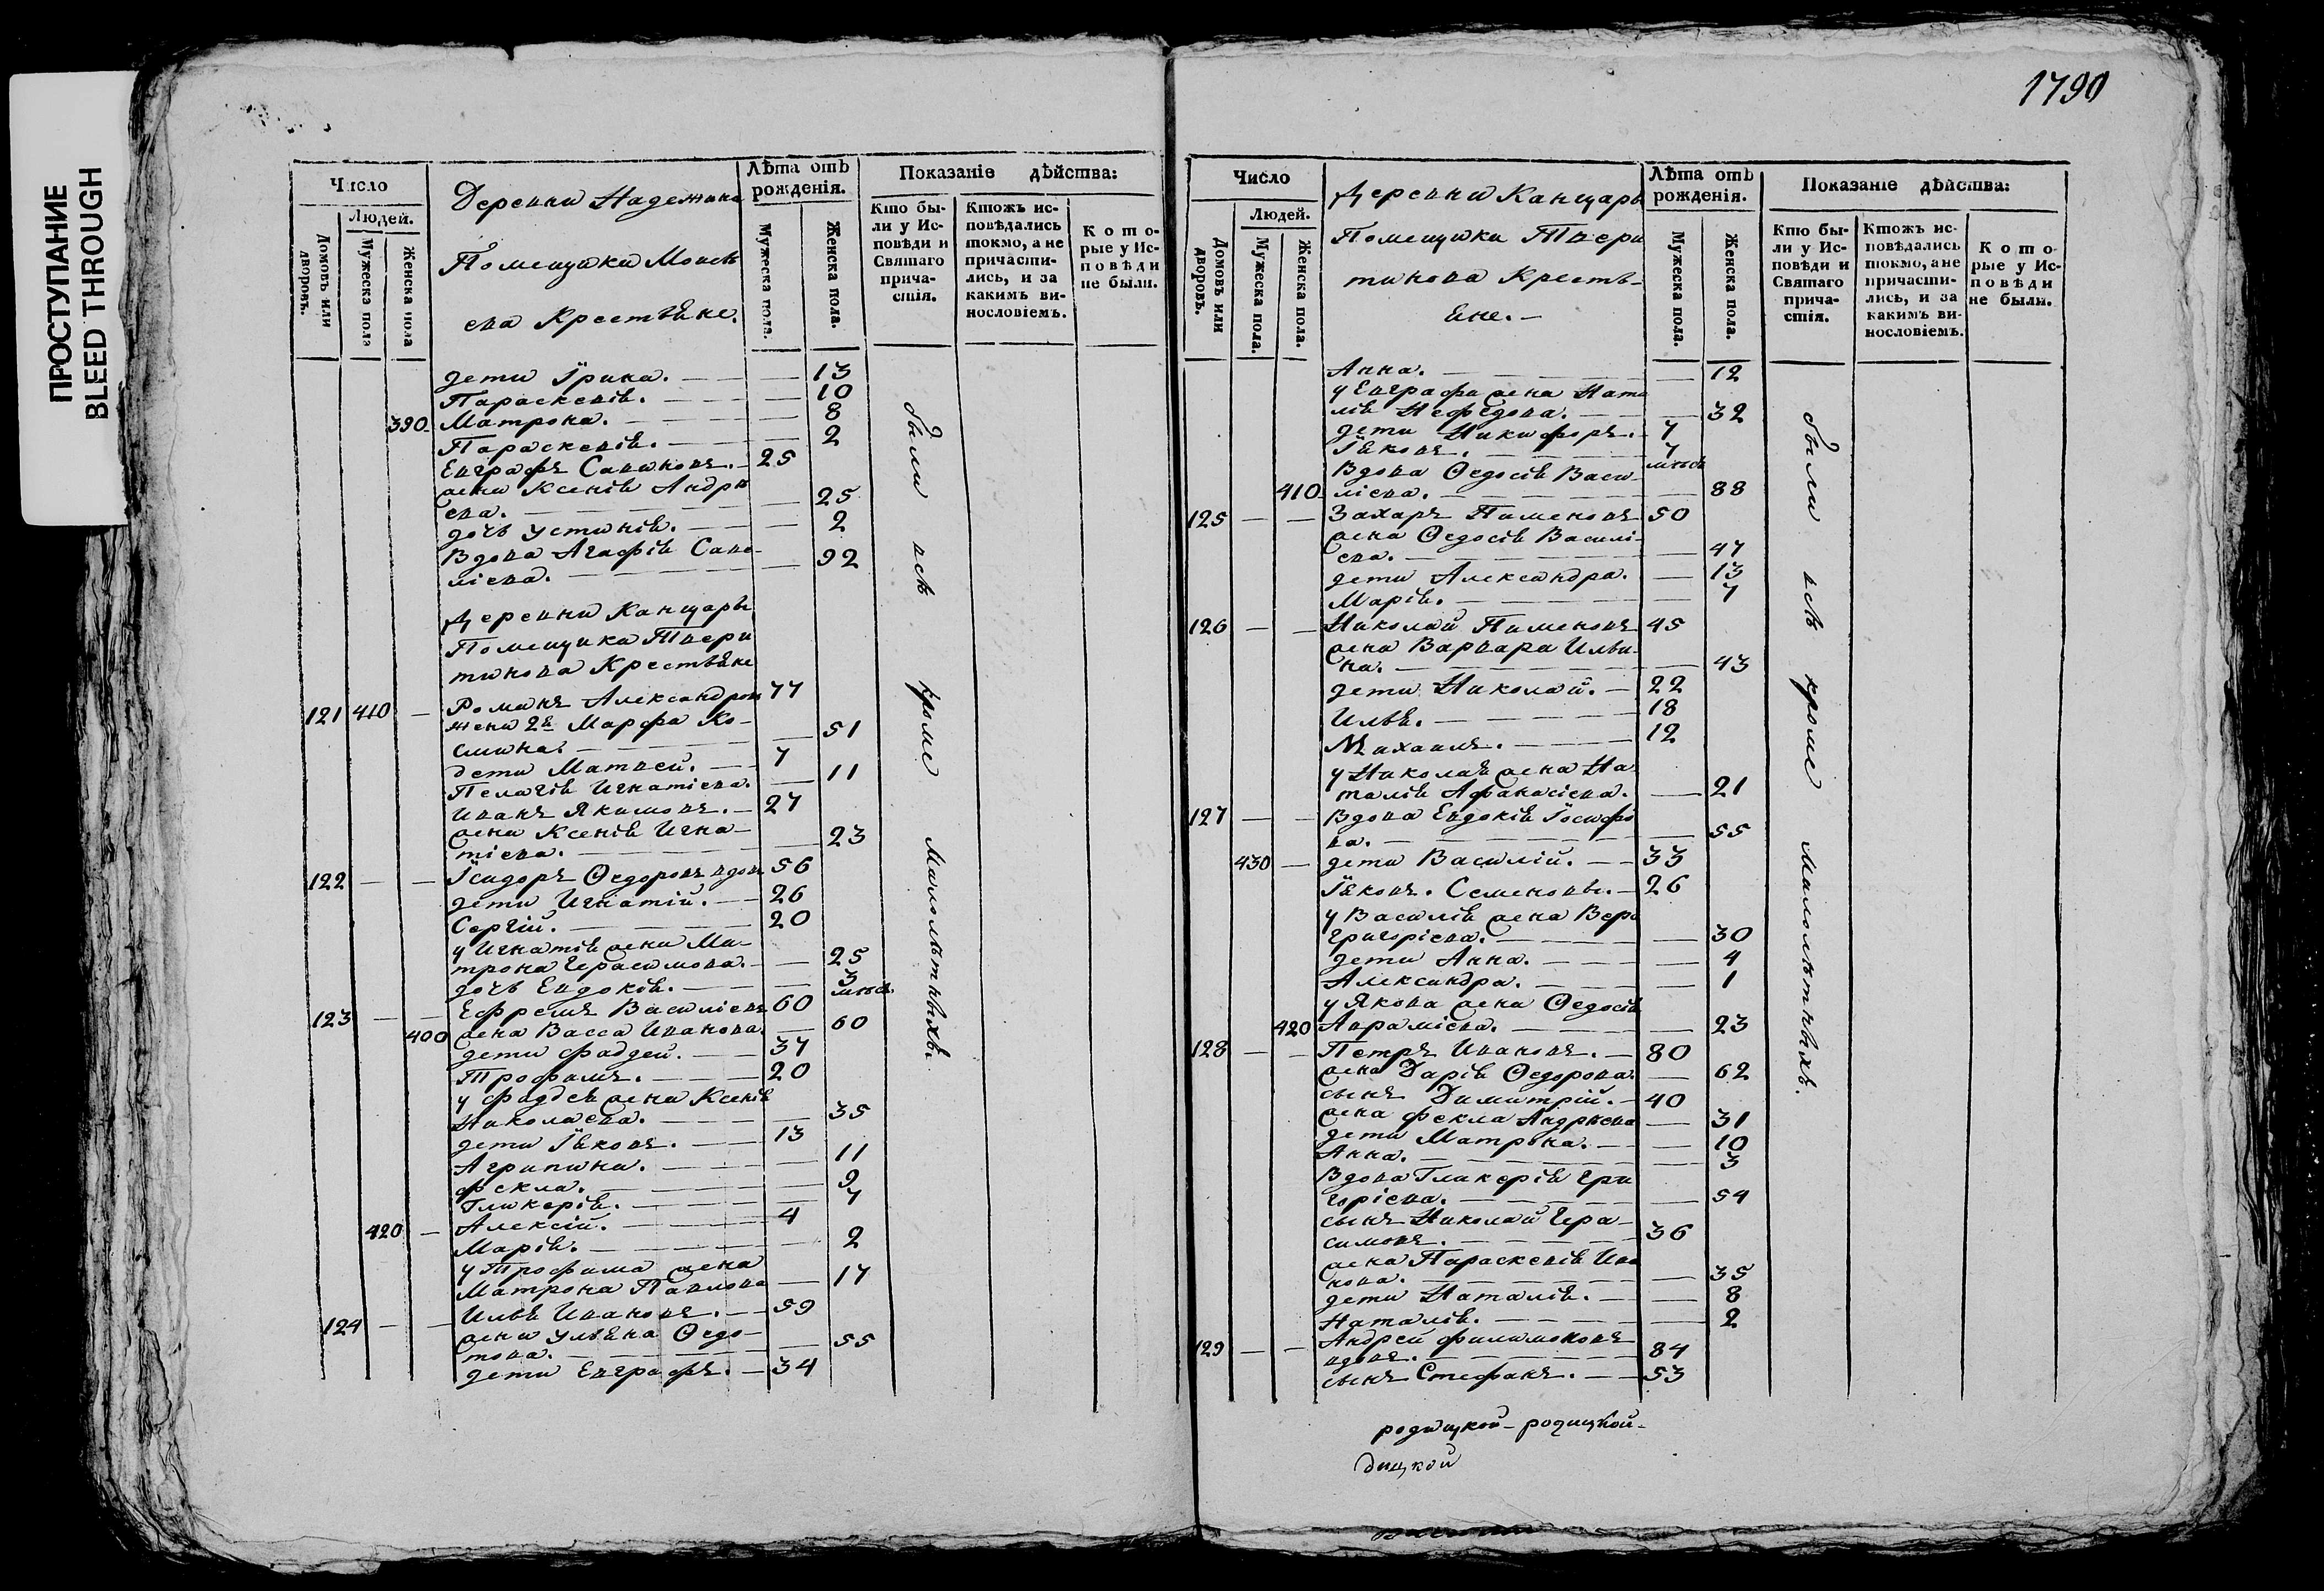 ПРОСТУПАНИЕ
BLEED THROUGH
1790
Число
Людей.
Домовъ или дворовъ.
Мужеска пола
Женска пола
Деревни Надежина
Помещики Моисе
ева Крестьяне.
Лѣта отъ рожденія.
Мужеска пола.
Женска пола.
Показаніе дѣйства:
Кто бы-
ли у Ис-
повѣди и
Святаго
прича-
стія.
Ктожъ ис-
повѣдались
токмо, а не
причасти-
лись, и за
какимъ ви-
нословіемъ.
Кото-
рые у Ис-
повѣди
не были.
дети Їрина. 13
Параскевія. 10
390 Матрона. 8
Параскевія. 2
Евграфъ Савиновъ. 25
жена Ксенія Андре
ева. 25
дочь Устинія. 2
Вдова Агафія Саве-
ліева. 92
Деревни Канцары
Помещика Твери
тинова Крестьяне
121 410 Романъ Александровъ 77
жена 2я Марфа Ко-
смина. 51
дети Матвей. 7
Пелагія Игнатіева. 11
Иванъ Якимовъ. 27
жена Ксенія Игна-
тіева. 23
122 Їсидоръ Ѳедоровъ вдовъ 56
дети Игнатій. 26
Сергій. 20
у Игнатія жена Ма-
трона Герасимова. 25
дочь Евдокія. 3 месяц
123 Ефремъ Василіевъ 60
400 жена Васса Иванова. 60
дети Фаддей. 37
Трофимъ. 20
у Фаддея жена Ксенія
Николаева. 35
дети Їяковъ. 13
Агрипина. 11
Фекла. 9
Гликерія. 7
420 Алексій. 4
Марія. 2
у Трофима жена
Матрона Павлова 17
124 Илья Ивановъ. 59
жена Ульяна Ѳедо-
това. 55
дети Евграфъ. 34
были всѣ кроме малолѣтныхъ.
Число
Людей.
Домовъ или дворовъ.
Мужеска пола.
Женска пола.
Деревни Канцары
Помещика Твери
тинова Кресть-
яне.
Лѣта отъ рожденія.
Мужеска пола.
Женска пола.
Показаніе дѣйства:
Кто бы-
ли у Ис-
повѣди и
Святаго
прича-
стія.
Ктожъ ис-
повѣдались
токмо, а не
причасти-
лись, и за
какимъ ви-
нословіемъ.
Кото-
рые у Ис-
повѣди
не были.
Анна. 12
у Евграфа жена Ната
лія Нефедова. 32
дети Никифоръ. 7
Їяковъ. 7 месяц
Вдова Ѳедосія Васи-
410 ліева. 88
125 Захаръ Пименовъ 50
жена Ѳедосія Василі-
ева. 47
дети Александра. 13
Марія. 7
126 Николай Пименовъ 45
жена Варвара Ильи-
на. 43
дети Николай. 22
Илья. 18
Михаилъ. 12
у Николая жена На-
талія Афанасіева. 21
127 Вдова Евдокія Їосифо
ва. 55
430 дети Василій. 33
Їяковъ. Семеновы. 26
у Василія жена Вера
Григоріева. 30
дети Анна. 4
Александра. 1
у Якова жена Ѳедосія
420 Авраміева. 23
128 Петръ Ивановъ. 80
жена Дарія Ѳедорова. 62
сынъ Димитрій. 40
жена Фекла Андреева 31
дети Матрона. 10
Анна. 3
Вдова Гликерія Гри
горіева. 54
сынъ Николай Гера-
симовъ. 36
жена Параскевія Ива
нова. 35
дети Наталія. 8
Наталія. 2
129 Андрей Филимоновъ
вдовъ. 84
сынъ Стефанъ. 53
были всѣ кроме малолѣтныхъ.
родицкой-родицкой-
дицкой